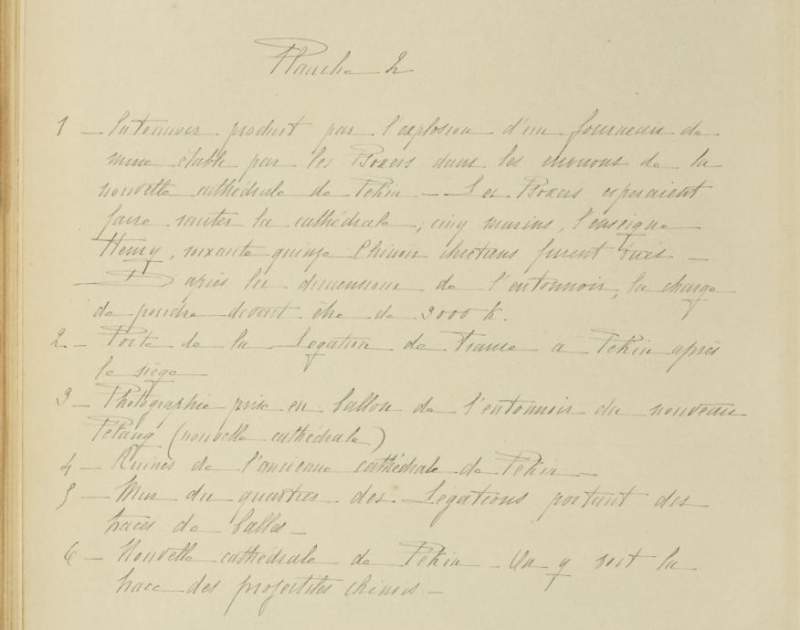 Planche 2
1 — Entonnoir produit par l'explosion d'un fourneau de
mine établi par les Boxers dans les environs de la
nouvelle cathédrale de Pékin — Les Boxers espéraient
faire sauter la cathédrale, cinq marins, l'enseigne
Henry, soixante quinze Chinois chrétiens furent tués —
D'après les dimensions de l'entonnoir, la charge
de poudre devait être de 3000 k.
2 — Porte de la Légation de France à Pékin après
le siège —
3 — Photographie prise en ballon de l'entonnoir du nouveau
Pétang (nouvelle cathédrale)
4 — Ruines de l'ancienne cathédrale de Pékin —
5 — Mur du quartier des Légations portant des
traces de balles —
6 — Nouvelle cathédrale de Pékin — On y voit la
trace des projectiles chinois —